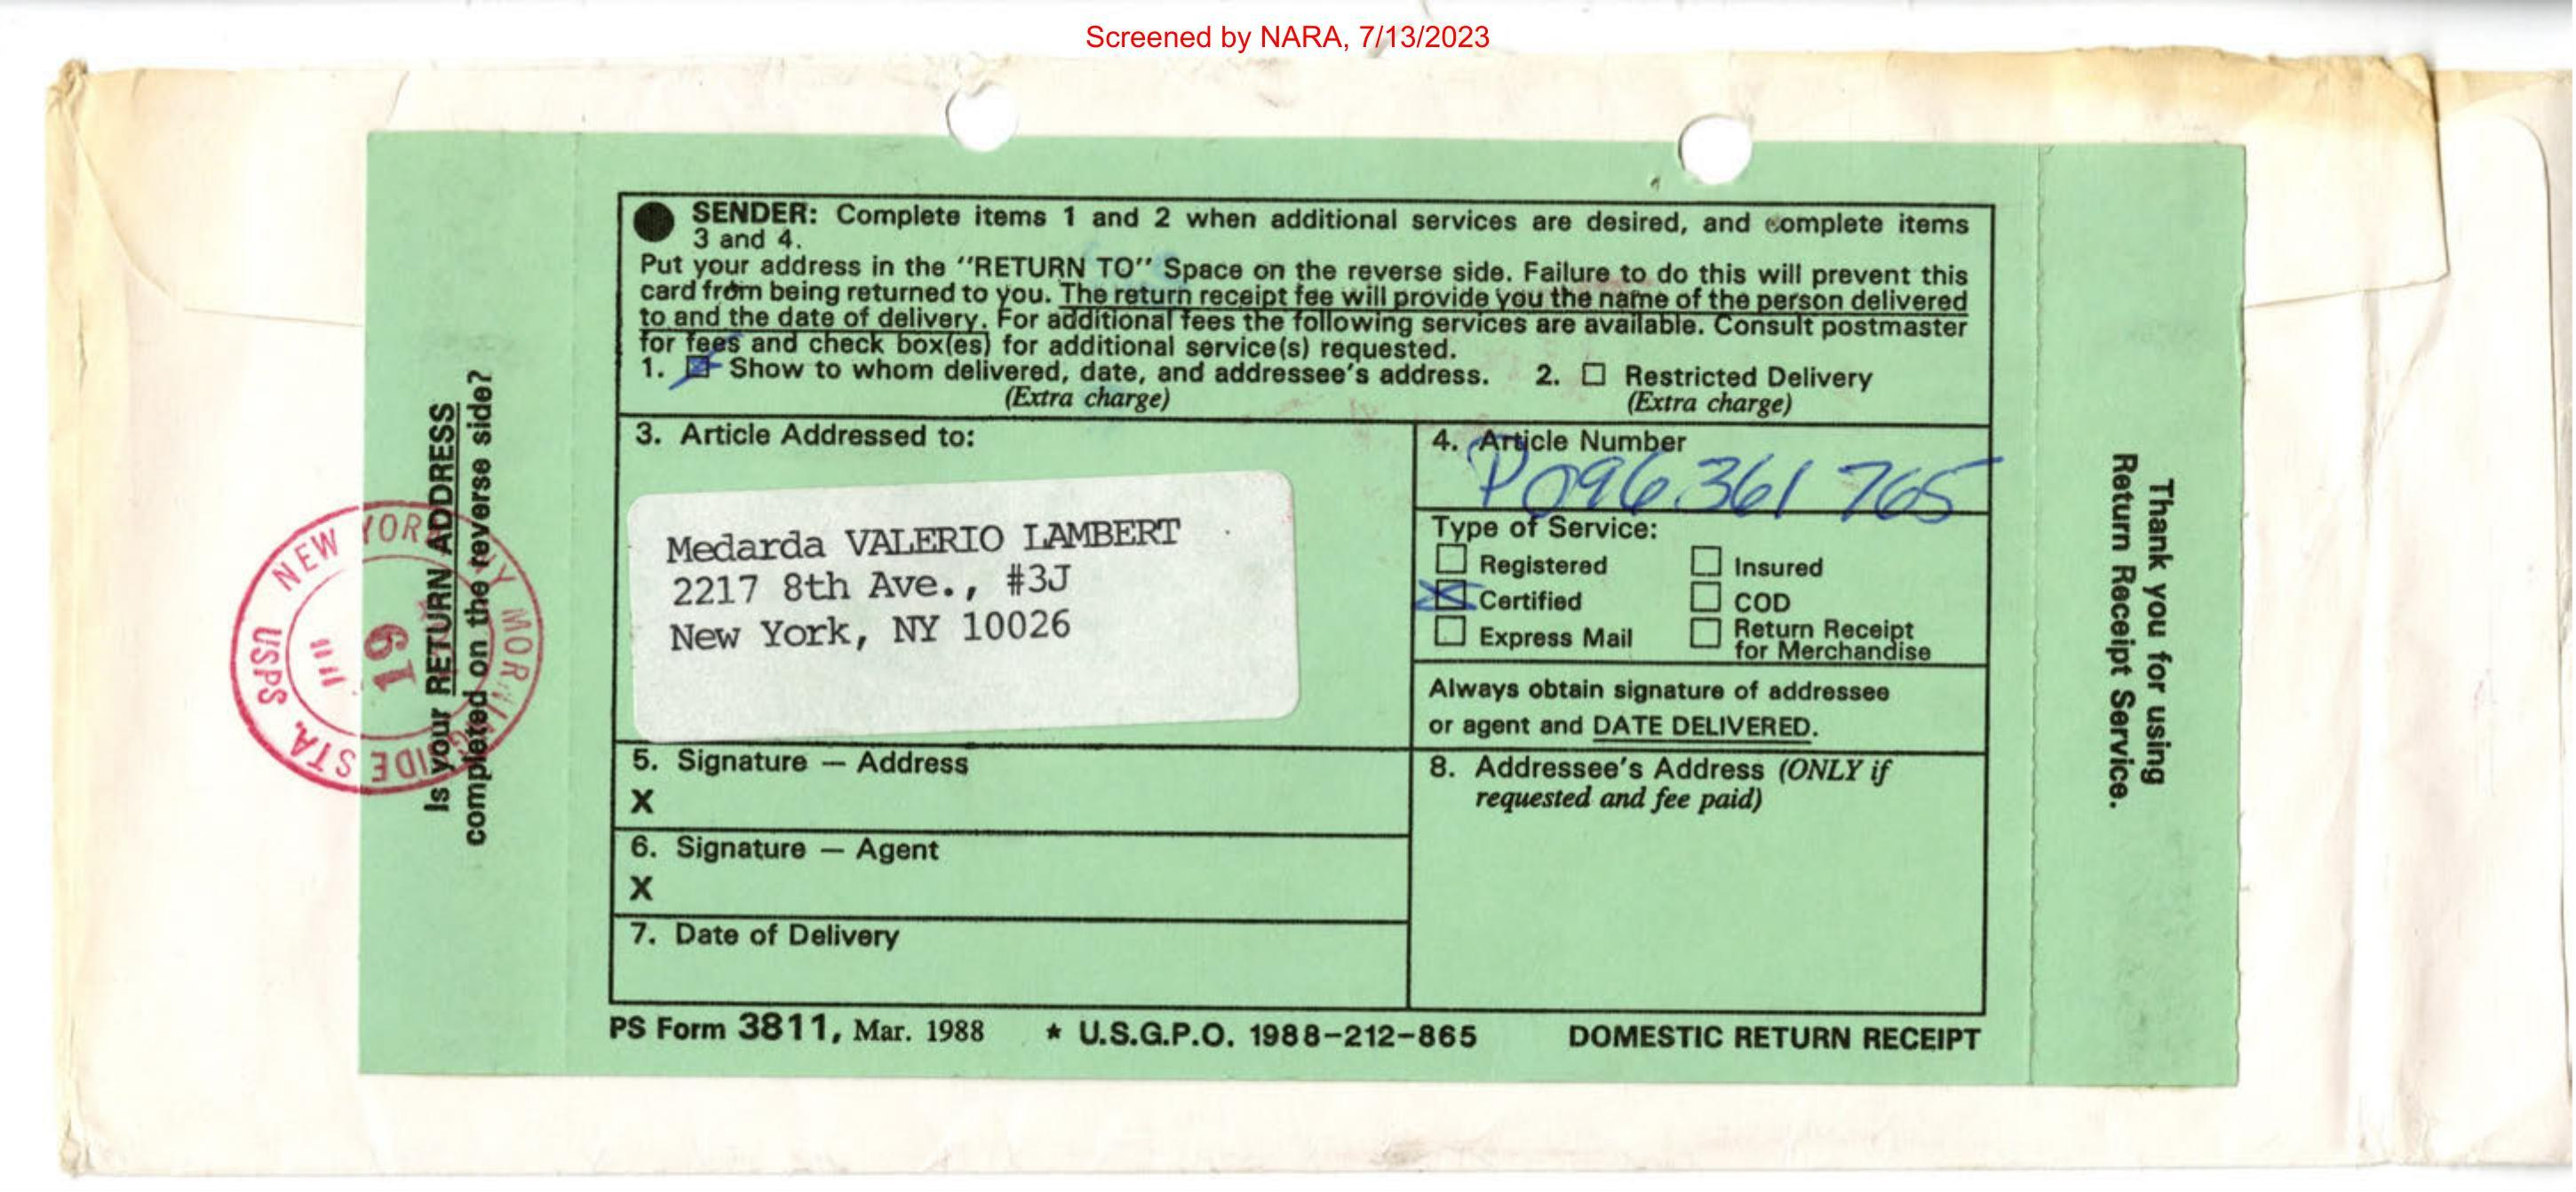 Screened by NARA, 7/13/2023
SENDER: Complete items 1 and 2 when additional services are desired, and complete items
3 and 4.
Put your address in the "RETURN TO" Space on the reverse side. Failure to do this will prevent this
card from being returned to you. The return receipt fee will provide you the name of the person delivered
to and the date of delivery. For additional fees the following services are available. Consult postmaster
for fees and check box(es) for additional service(s) requested.
1. ☒ Show to whom delivered, date, and addressee's address. 2. ☐ Restricted Delivery
(Extra charge) (Extra charge)
3. Article Addressed to:
Medarda VALERIO LAMBERT
2217 8th Ave., #3J
New York, NY 10026
4. Article Number
P096 361 765
Type of Service:
☐ Registered ☐ Insured
☒ Certified ☐ COD
☐ Express Mail ☐ Return Receipt
for Merchandise
Always obtain signature of addressee
or agent and DATE DELIVERED.
5. Signature — Address
X
6. Signature — Agent
X
7. Date of Delivery
8. Addressee's Address (ONLY if
requested and fee paid)
PS Form 3811, Mar. 1988 * U.S.G.P.O. 1988-212-865 DOMESTIC RETURN RECEIPT
Is your RETURN ADDRESS
completed on the reverse side?
Thank you for using
Return Receipt Service.
NEW YORK NY MORNINGSIDE STA. USPS
19